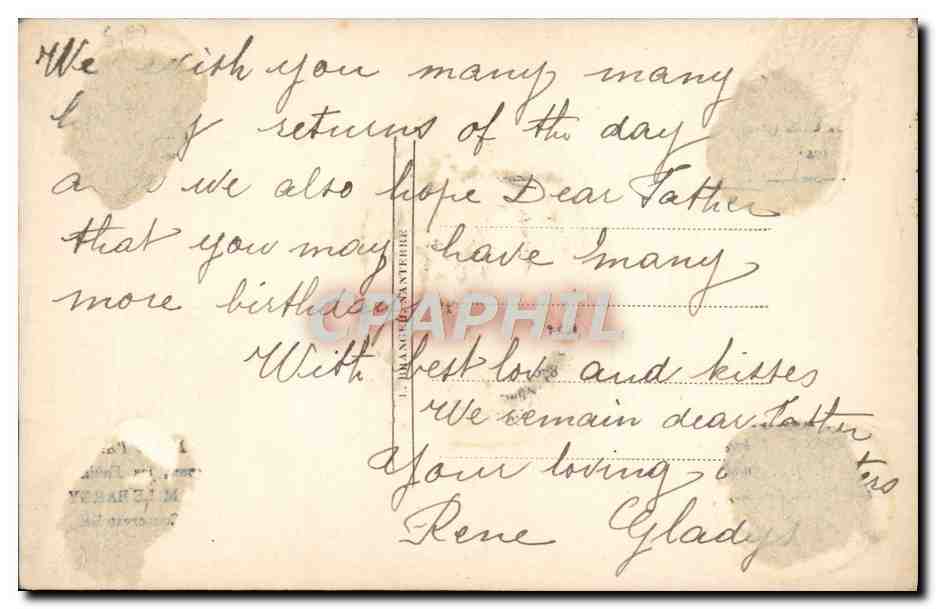 We wish you many many
returns of the day
we also hope Dear Father
that you may have many
more birthdays
With best love and kisses
We remain dear Father
Your loving
Rene Gladys
I. BRANGER. NANTERRE
CPAPHIL